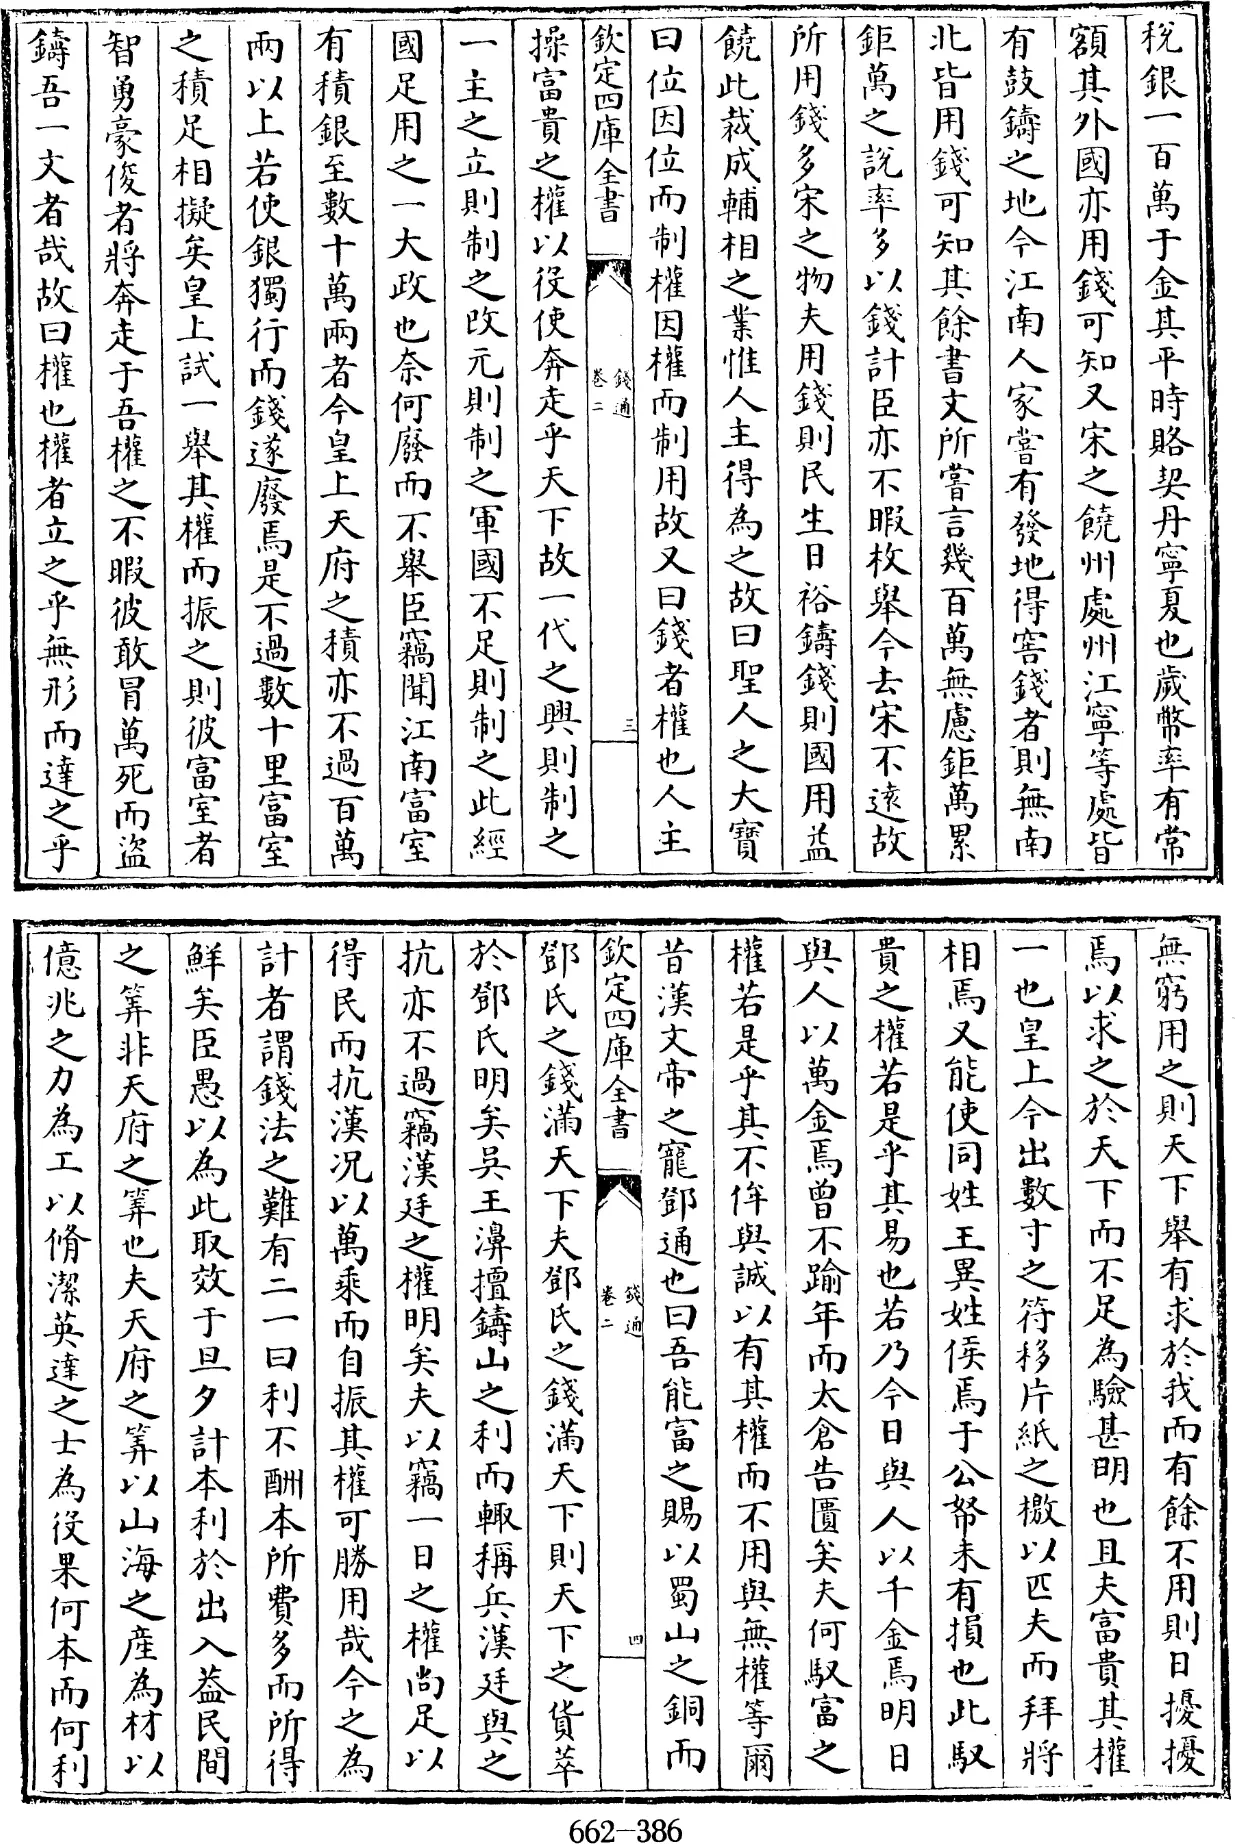 稅銀一百萬于金其平時賂契丹寧夏也歲幣率有常
額其外國亦用錢可知又宋之饒州處州江寧等處皆
有鼓鑄之地今江南人家嘗有發地得窖錢者則無南
北皆用錢可知其餘書文所嘗言幾百萬無慮鉅萬累
鉅萬之說率多以錢計臣亦不暇枚舉今去宋不遠故
所用錢多宋之物夫用錢則民生日裕鑄錢則國用益
饒此裁成輔相之業惟人主得為之故曰聖人之大寶
曰位因位而制權因權而制用故又曰錢者權也人主
欽定四庫全書
錢通
卷二
三
操富貴之權以役使奔走乎天下故一代之興則制之
一主之立則制之改元則制之軍國不足則制之此經
國足用之一大政也奈何廢而不舉臣竊聞江南富室
有積銀至數十萬兩者今皇上天府之積亦不過百萬
兩以上若使銀獨行而錢遂廢焉是不過數十里富室
之積足相擬矣皇上試一舉其權而振之則彼富室者
智勇豪俊者將奔走于吾權之不暇彼敢冒萬死而盜
鑄吾一文者哉故曰權也權者立之乎無形而達之乎
無窮用之則天下舉有求於我而有餘不用則日擾擾
焉以求之於天下而不足為驗甚明也且夫富貴其權
一也皇上今出數寸之符移片紙之檄以匹夫而拜將
相焉又能使同姓王異姓侯焉于公帑未有損也此馭
貴之權若是乎其易也若乃今日與人以千金焉明日
與人以萬金焉曾不踰年而太倉告匱矣夫何馭富之
權若是乎其不侔與誠以有其權而不用與無權等爾
昔漢文帝之寵鄧通也曰吾能富之賜以蜀山之銅而
欽定四庫全書
錢通
卷二
四
鄧氏之錢滿天下夫鄧氏之錢滿天下則天下之貨萃
於鄧氏明矣吳王濞擅鑄山之利而輒稱兵漢廷與之
抗亦不過竊漢廷之權明矣夫以竊一日之權尚足以
得民而抗漢況以萬乘而自振其權可勝用哉今之為
計者謂錢法之難有二一曰利不酬本所費多而所得
鮮矣臣愚以為此取效于旦夕計本利於出入蓋民間
之筭非天府之筭也夫天府之筭以山海之產為材以
億兆之力為工以脩潔英達之士為役果何本而何利
662-386